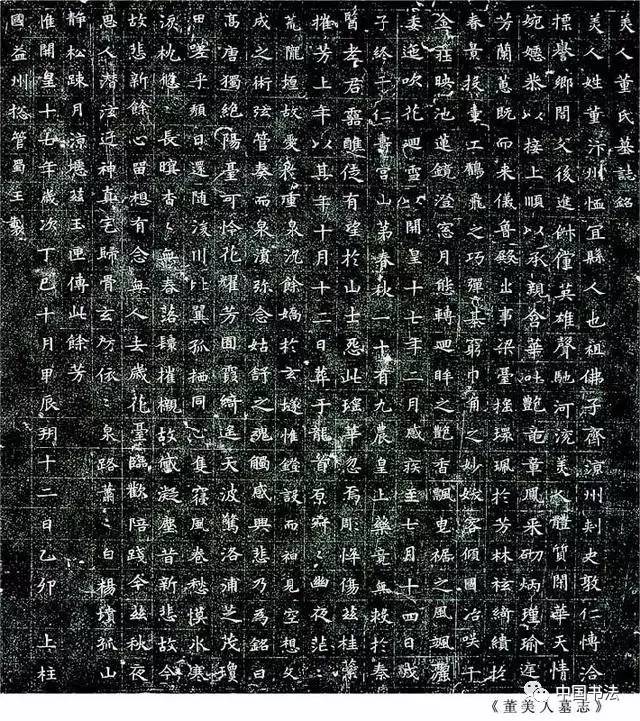 美人董氏墓誌銘
美人姓董汴州恤宜縣人也祖佛子齊涼州刺史敦仁博洽
摽譽鄉閭父後進俶儻英雄聲馳河渷美人體質閑華天情
婉嫕恭以接上順以承親含華吐艷竜章鳳采砌炳瑾瑜庭
芳蘭蕙既而来儀魯殿出事梁臺搖環珮於芳林袨綺繢於
春景投壺工鶴飛之巧彈棊窮巾角之妙妖容傾國冶咲千
金莊映池蓮鏡澄窓月態轉迴眸之艷香飄曳裾之風颯灑
委迤吹花迴雪以開皇十七年二月感疾至七月十四日戊
子終于仁壽宮山第春秋一十有九農皇上藥竟無救於秦
醫老君靈醮徒有望於山士怨此瑤華忽焉彫悴傷茲桂蘂
摧芳上年以其年十月十二日葬于龍首原寂〻幽夜茫〻
荒隴埋故愛於重泉沉餘嬌於玄隧惟鐙設而神見空想文
成之術弦管奏而泉濆弥念姑舒之魂觸感興悲乃為銘曰
高唐獨絕陽臺可怜花耀芳囿霞綺遙天波驚洛浦芝茂瓊
田嗟乎頹日還隨浚川比翼孤栖同心隻寢風卷愁慔氷寒
淚枕悠〻長暝杳〻無春落鬟摧櫬故黛凝塵昔新悲故今
故悲新餘心留想有念無人去歲花臺臨歡陪踐今茲秋夜
思人潛泫迮神真宅歸骨玄房依〻泉路蕭〻白楊墳孤山
静松踈月涼瘞茲玉匣傳此餘芳
惟開皇十七年歲次丁巳十月甲辰朔十二日乙卯 上柱
國益州揔管蜀王製
中国书法
《董美人墓志》